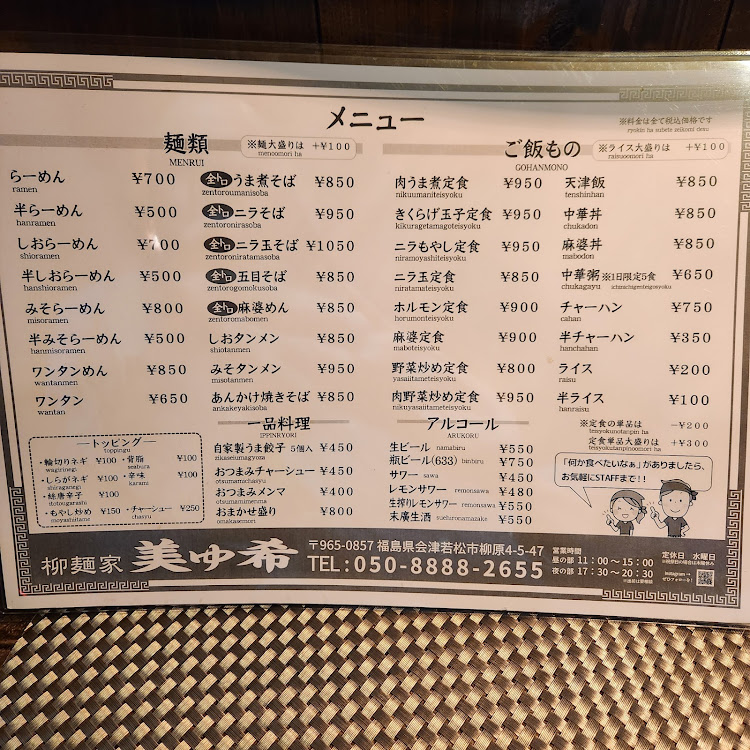 メニュー
※料金は全て税込価格です
ryokin ha subete zeikomi desu
麺類
MENRUI
※麺大盛りは +¥100
menoomori ha
らーめん ¥700
ramen
半らーめん ¥500
hanramen
しおらーめん ¥700
shioramen
半しおらーめん ¥500
hanshioramen
みそらーめん ¥800
misoramen
半みそらーめん ¥500
hanmisoramen
ワンタンめん ¥850
wantanmen
ワンタン ¥650
wantan
全トロ うま煮そば ¥850
zentoroumanisoba
全トロ ニラそば ¥850
zentoronirasoba
全トロ ニラ玉そば ¥1050
zentoroniratamasoba
全トロ 五目そば ¥850
zentorogomokusoba
全トロ 麻婆めん ¥850
zentoromabomen
しおタンメン ¥850
shiotanmen
みそタンメン ¥850
misotanmen
あんかけ焼きそば ¥850
ankakeyakisoba
ートッピングー
toppingu
・輪切りネギ ¥100
・背脂 ¥100
seabura
・しらがネギ ¥100
shiraganegi
・辛味 ¥100
karami
・糸唐辛子 ¥100
itotougarashi
・もやし炒め ¥150
moyashiitame
・チャーシュー ¥250
chasyu
一品料理
IPPINRYORI
自家製うま餃子 5個入 ¥450
zikaseiumagyoza
おつまみチャーシュー ¥450
otsumamichasyu
おつまみメンマ ¥400
otsumamimenma
おまかせ盛り ¥800
omakasemori
ご飯もの
GOHANMONO
※ライス大盛りは +¥100
raisuoomori ha
肉うま煮定食 ¥950
nikuumaniteisyoku
きくらげ玉子定食 ¥950
kikuragetamagoteisyoku
ニラもやし定食 ¥950
niramoyashiteisyoku
ニラ玉定食 ¥850
niratamateisyoku
ホルモン定食 ¥900
horumonteisyoku
麻婆定食 ¥900
maboteisyoku
野菜炒め定食 ¥800
yasaiitameteisyoku
肉野菜炒め定食 ¥950
nikuyasaiitameteisyoku
天津飯 ¥850
tenshinhan
中華丼 ¥850
chukadon
麻婆丼 ¥850
mabodon
中華粥 ※1日限定5食 ¥650
chukagayu
チャーハン ¥750
cahan
半チャーハン ¥350
hanchahan
ライス ¥200
raisu
半ライス ¥100
hanraisu
※定食の単品は -¥200
teisyokunotanpin ha
定食単品大盛りは +¥300
teisyokutanpinoomori ha
アルコール
ARUKORU
生ビール namabiru ¥550
瓶ビール(633) binbiru ¥750
サワー sawa ¥450
レモンサワー remonsawa ¥480
生搾りレモンサワー remonsawa ¥550
末廣生酒 suehironamazake ¥550
「何か食べたいなぁ」がありましたら、
お気軽にSTAFFまで!!
柳麺家 美ゆ希
〒965-0857 福島県会津若松市柳原4-5-47
TEL:050-8888-2655
営業時間
昼の部 11:00～15:00
夜の部 17:30～20:30
定休日 水曜日
Instagram→
ぜひフォローを!